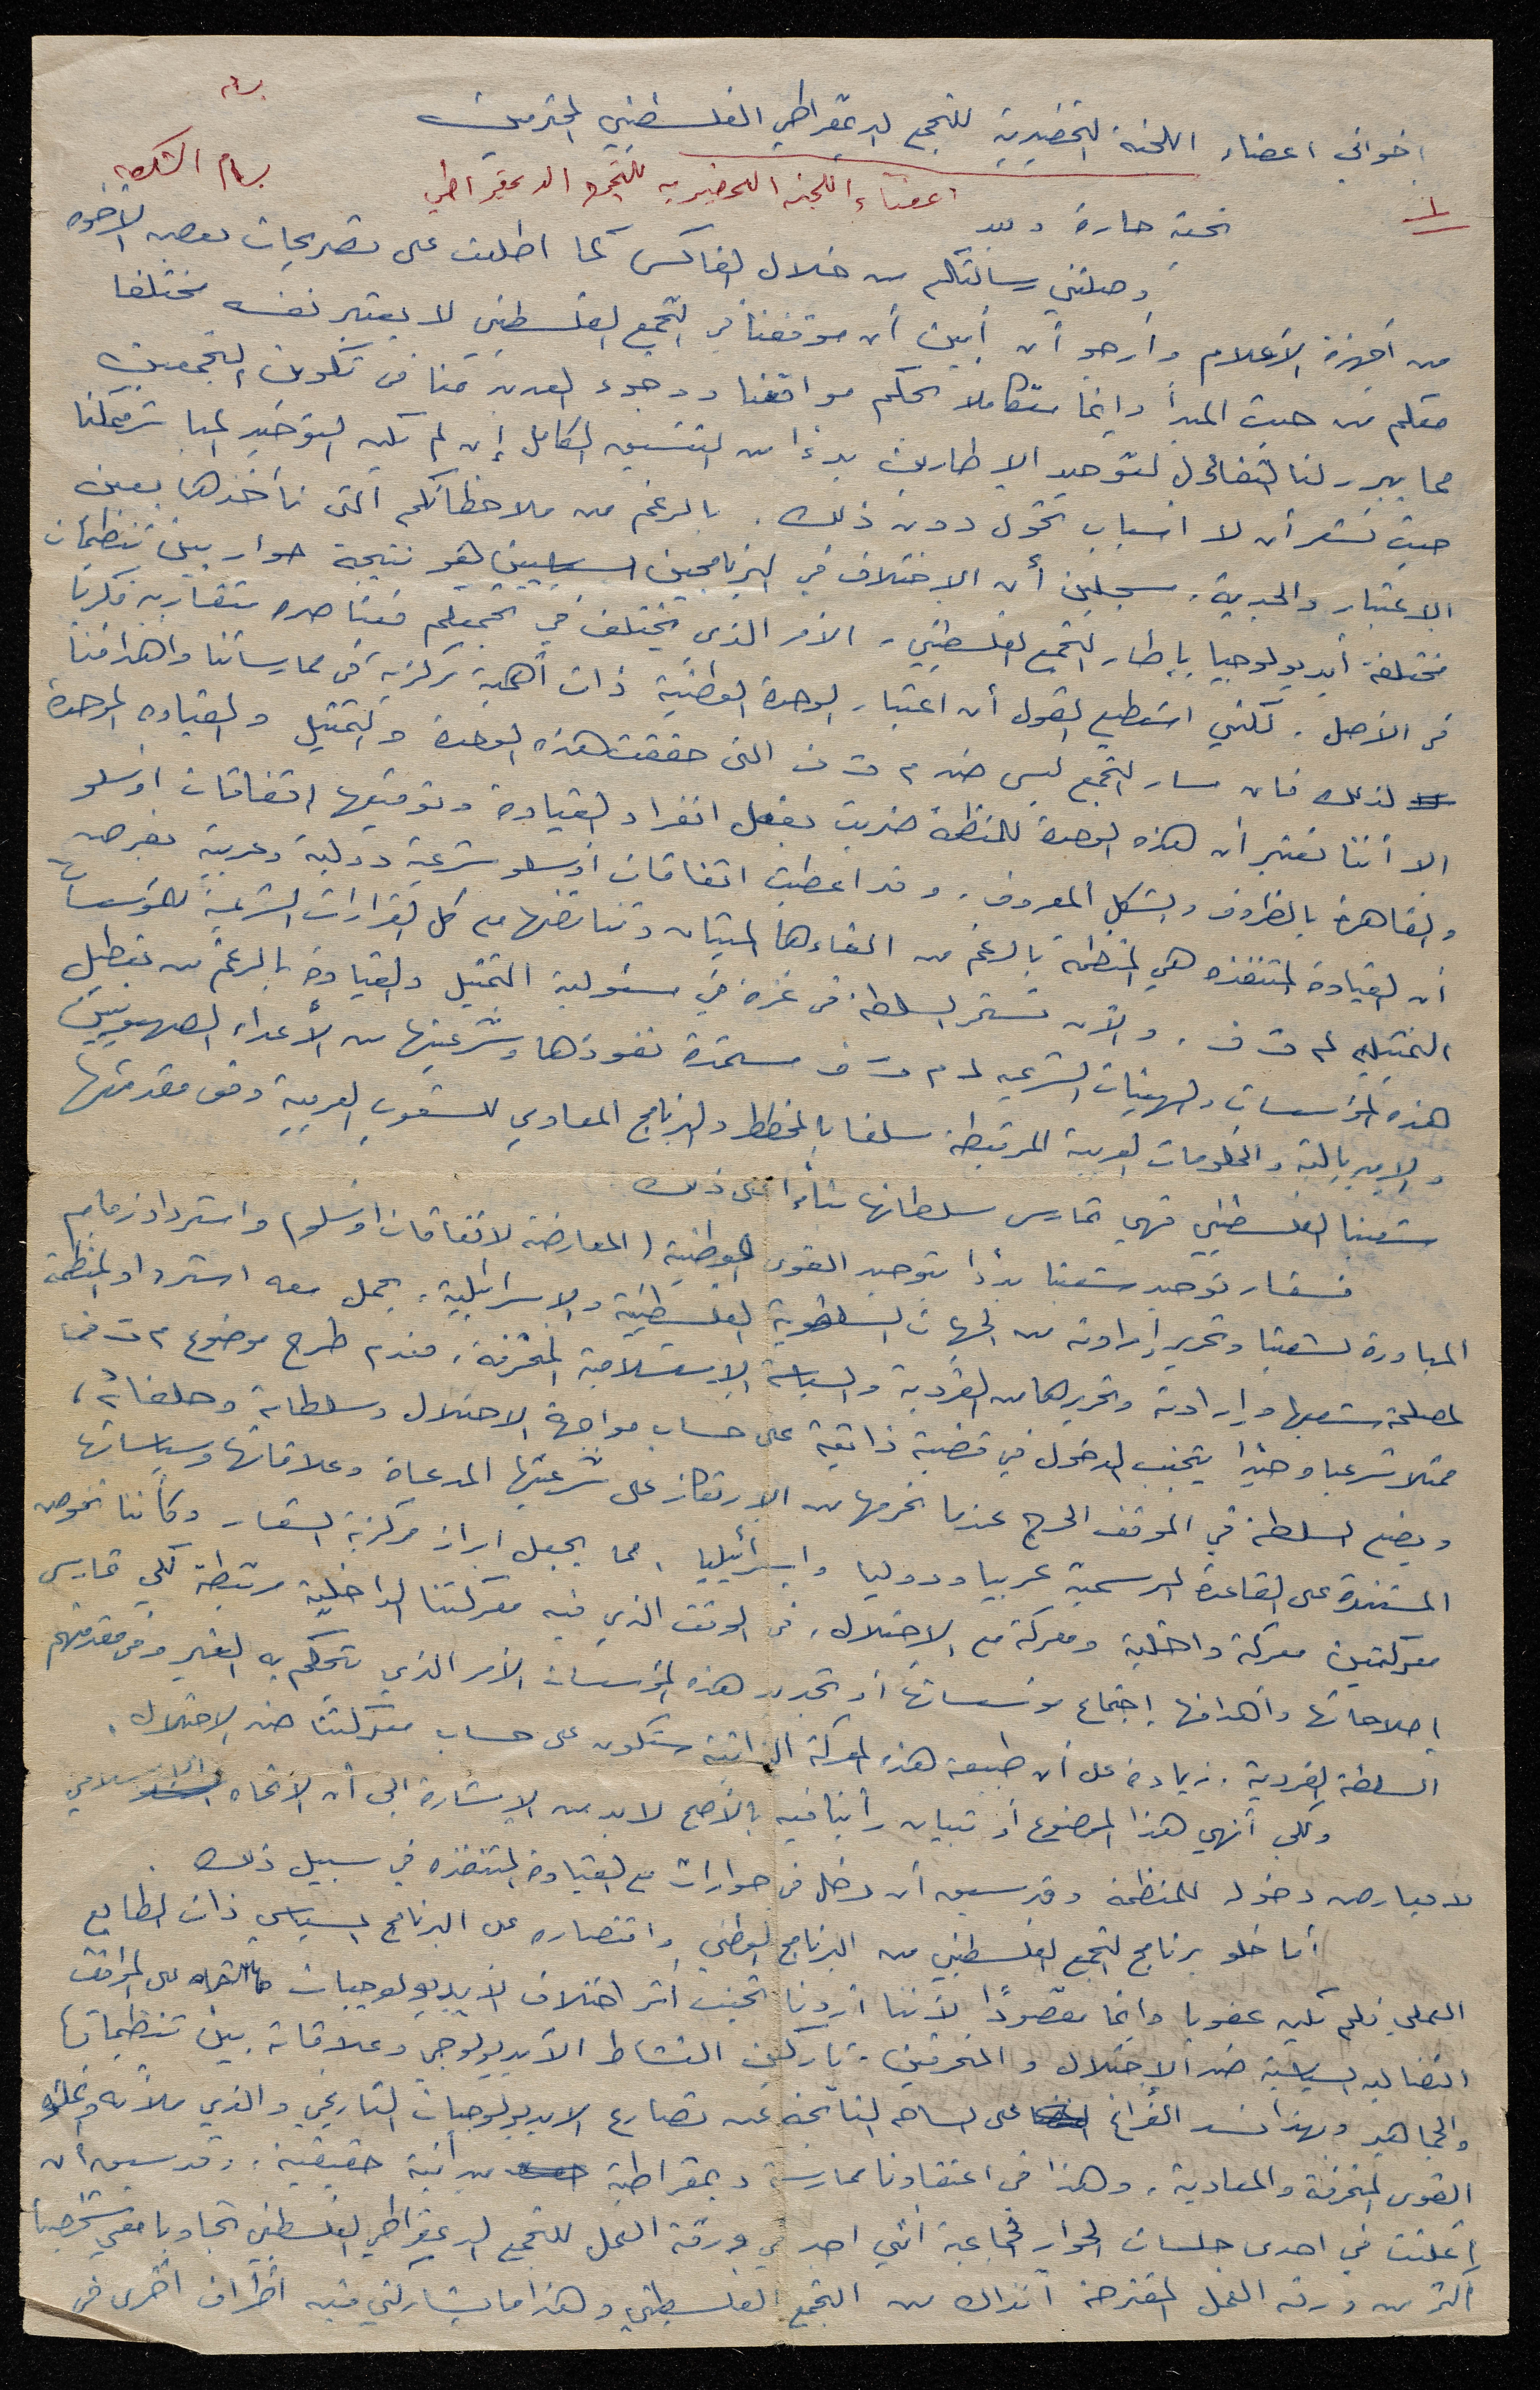 اخواني اعضاء اللجنة التحضيرية للتجمع الديمقراطي الفلسطيني المحترمين
اعضاء اللجنة التحضيرية للتجمع الديمقراطي
بسام الشكعه
١
تحية حارة وبعد
وصلتني رسالتكم من خلال الفاكس كما اطلعت على تصريحات بعض الاخوه
من أجهزة الأعلام وأرجو أن أبين أن موقفنا في التجمع الفلسطيني لا يعتبر نفسه مختلفا
معكم من حيث المبدأ وإنما متكاملا بحكم مواقفنا ووجود العديد منا في تكوين التجمعين
مما يبرر لنا التفاؤل لتوحيد الإطارين بدءاً من التنسيق الكامل إن لم يكن التوحيد المباشر يمكننا
حيث نشعر أن لا اسباب تحول دون ذلك. بالرغم من ملاحظاتكم التي نأخذها بعين
الاعتبار والجدية. سجلين أن الاختلاف في البرنامجين السياسيين هو نتيجة حوار بين تنظيمات
مختلفة أيديولوجيا بإطار التجمع الفلسطيني، الأمر الذي يختلف في تجمعكم فعناصره متقاربة فكريا
في الأصل. لكنني استطيع القول أن اعتبار الوحدة الوطنية ذات أهمية مركزية في ممارساتنا واهدافنا
لذلك فان مسار التجمع ليس ضد م ت ف التي حققت هذه الوحدة والتمثيل والقياده الموحدة
الا أننا نعتبر أن هذه الوحدة للمنظمة ضربت بفعل انفراد القيادة وتوقيعها اتفاقات اوسلو
والقاهرة بالظروف والشكل المعروف. وقد اعطيت اتفاقات أوسلو شرعية دولية وعربية بفرض
ان القيادة المتنفذه هي المنظمة بالرغم من الغاءها الميثاق وتناقضها مع كل القرارات الشرعية للمؤسسات
التمثيليه لـ م ت ف. والآن تستمر السلطة في غزة في مسئولية التمثيل والقيادة بالرغم من تعطيل
هذه المؤسسات والهيئات الشرعيه لـ م ت ف مستمدة نفوذها وشرعيتها من الأعداء الصهيونيين
والإمبريالية والحكومات العربية المرتبطة سلفا بالمخطط والبرنامج المعادي للشعوب العربية وفي مقدمتها
شعبنا الفلسطيني فهي تمارس سلطانها بناءا على ذلك
فشعار توحيد شعبنا بدءاً بتوحيد القوى الوطنية (المعارضة لاتفاقات اوسلو) واسترداد زمام
المبادرة لشعبنا وتحرير إرادته من الجهات السلطوية الفلسطينية والإسرائيلية. يحمل معه استرداد المنظمة
لمصلحة شعبها وإرادته وتحريرها من الفردية والسياسة الإستسلامية المنحرفة، فعدم طرح موضوع م ت ف
ممثلا شرعيا وحيدا يتجنب الدخول في قضية ذاتية على حساب مواجهة الاحتلال وسلطاته وحلفائه،
ويضع السلطة في الموقف الحرج عندما نحرمها من الإرتكاز على شرعيتها المدعاة وعلاقاتها وسياساتها
المستندة على القاعدة الرسمية عربيا ودوليا وإسرائيليا، مما يجعل ابراز مركزية الشعار وكأننا نخوض
معركتين معركة داخلية ومعركة مع الإحتلال، في الوقت الذي فيه معركتنا الداخلية مرتبطة لكي تمارس
إصلاحاتها واهدافها إجتماع مؤسساتها أو تجديد هذه المؤسسات الأمر الذي يتحكم به الغير وفي مقدمتهم
السلطة الفردية. زيادة على أن طبيعة هذه المعركة الذاتية ستكون على حساب معركتنا ضد الإحتلال.
ولكي أنهي هذا الموضوع أو تبيان رأينا فيه بالأصح لا بد من الإشارة إلى أن الاتجاه الإسلامي
لا يعارض دخول للمنظمة وقد سبق أن دخل في حوارات مع القيادة المتنفذه في سبيل ذلك.
أما خلو برنامج التجمع الفلسطيني من البرنامج الوطني واقتصاره على البرنامج السياسي ذات الطابع
العملي فلم يكن عفويا وإنما مقصودًا لأننا أردنا تجنب أثر اختلاف الأيديولوجيات على المواقف
النضاليه السياسية ضد الإحتلال والمنحرفين. تاركين النشاط الأيديولوجي وعلاقاته بين تنظيماتها
والجماهير وبهذا نسد الفراغ على الساحه الناتجة عن تصارع الايديولوجيات التاريخي والذي ملأته
القوى المنحرفة والمعادية. وهذا في اعتقادنا ممارسة ديمقراطية ميدانية حقيقية. وقد سبق أن
أعلنت في احدى جلسات الحوار الجماعية أنني اجد في ورقة العمل للتجمع الديمقراطي الفلسطيني تجاوبا معي شخصيا
أكثر من ورقة العمل المقترحة آنذاك من التجمع الفلسطيني وهذا ما يشاركني فيه أطراف أخرى في